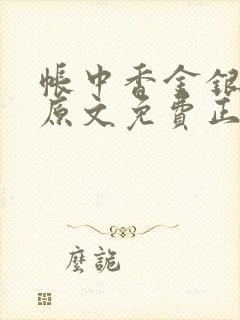 帳中香金銀
原文免費正
麼詭